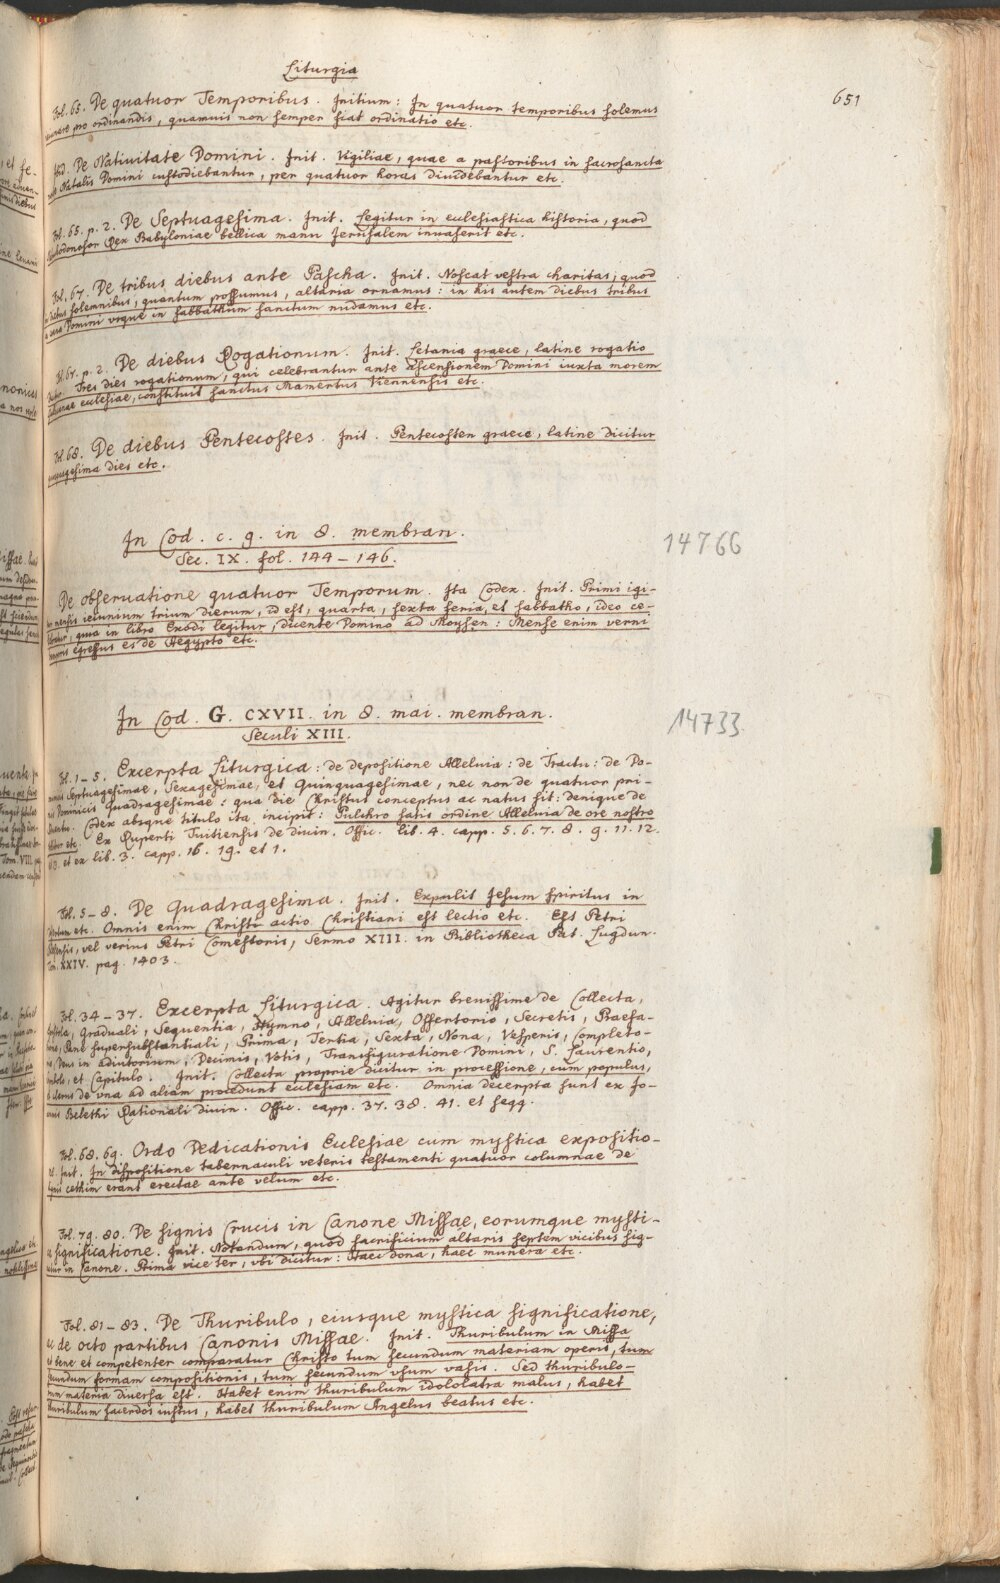 Liturgia
651
Fol. 65. De quatuor Temporibus. Initium: In quatuor temporibus solemus
pro ordinandis, quamuis non semper fiat ordinatio etc.
Ibid. De Natiuitate Domini. Init. Vigiliae, quae a pastoribus in sacrosancta
Natalis Domini custodiebantur, per quatuor horas diuidebantur etc.
Fol. 65. p. 2. De Septuagesima. Init. Legitur in ecclesiastica historia, quod
Rex Babyloniae bellica manu Jerusalem inuaserit etc.
Fol. 67. De tribus diebus ante Pascha. Init. Noscat vestra charitas, quod
diebus solemnibus, quantum possumus, altaria ornamus: in his autem diebus tribus
a cena Domini vsque in sabbathum sanctum nudamus etc.
Fol. 67. p. 2. De diebus Rogationum. Init. Letania graece, latine rogatio
Tres dies rogationum, qui celebrantur ante ascensionem Domini iuxta morem
ecclesiae, constituit sanctus Mamertus Viennensis etc.
Fol. 68. De diebus Pentecostes. Init. Pentecosten graece, latine dicitur
quinquagesima dies etc.
In Cod. c. g. in 8. membran.
14766
Sec. IX. fol. 144–146.
De obseruatione quatuor Temporum. Ita Codex. Init. Primi igi-
tur mensis ieiunium trium dierum, id est, quarta, sexta feria, et sabbatho, ideo ce-
quia in libro Exodi legitur, dicente Domino ad Moysen: Mense enim verni
temporis egressus es de Aegypto etc.
In Cod. G. CXVII. in 8. mai. membran.
14733
Seculi XIII.
Fol. 1–5. Excerpta Liturgica: de depositione Alleluia: de Tractu: de Do-
minicis Septuagesimae, Sexagesimae, et Quinquagesimae, nec non de quatuor pri-
mis Dominicis Quadragesimae: qua die Christus conceptus ac natus sit: denique de
Codex absque titulo ita incipit: Pulchro satis ordine Alleluia de ore nostro
tollitur etc. Ex Ruperti Tuitiensis de diuin. Offic. lib. 4. capp. 5. 6. 7. 8. 9. 11. 12.
et 13. et ex lib. 3. capp. 16. 19. et 1.
Fol. 5–8. De Quadragesima. Init. Expulit Jesum spiritus in
desertum etc. Omnis enim Christi actio Christiani est lectio etc. Est Petri
Blesensis, vel verius Petri Comestoris, Sermo XIII. in Bibliotheca Pat. Lugdun.
Tom. XXIV. pag. 1403.
Fol. 34–37. Excerpta Liturgica. Agitur breuissime de Collecta,
Epistola, Graduali, Sequentia, Hymno, Alleluia, Offertorio, Secretis, Praefa-
tione, Pane supersubstantiali, Prima, Tertia, Sexta, Nona, Vesperis, Completo-
rio, Deus in adiutorium, Decimis, Votis, Transfiguratione Domini, S. Laurentio,
et Capitulo. Init. Collecta proprie dicitur in processione, cum populus,
et clerus de vna ad aliam procedunt ecclesiam etc. Omnia decerpta sunt ex Jo-
annis Belethi Rationali diuin. Offic. capp. 37. 38. 41. et seqq.
Fol. 68. 69. Ordo Dedicationis Ecclesiae cum mystica expositio-
ne. Init. In dispositione tabernaculi veteris testamenti quatuor columnae de
lignis cethim erant erectae ante velum etc.
Fol. 79. 80. De signis Crucis in Canone Missae, eorumque mysti-
ca significatione. Init. Notandum, quod sacrificium altaris septem vicibus sig-
natur in Canone. Prima vice ter, vbi dicitur: Haec dona, haec munera etc.
Fol. 81–83. De Thuribulo, eiusque mystica significatione,
ac de octo partibus Canonis Missae. Init. Thuribulum in Missa
et bene et competenter comparatur Christo tum secundum materiam operis, tum
secundum formam compositionis, tum secundum vsum vasis. Sed thuribulo-
rum materia diuersa est. Habet enim thuribulum idololatra malus, habet
thuribulum sacerdos iustus, habet thuribulum Angelus beatus etc.